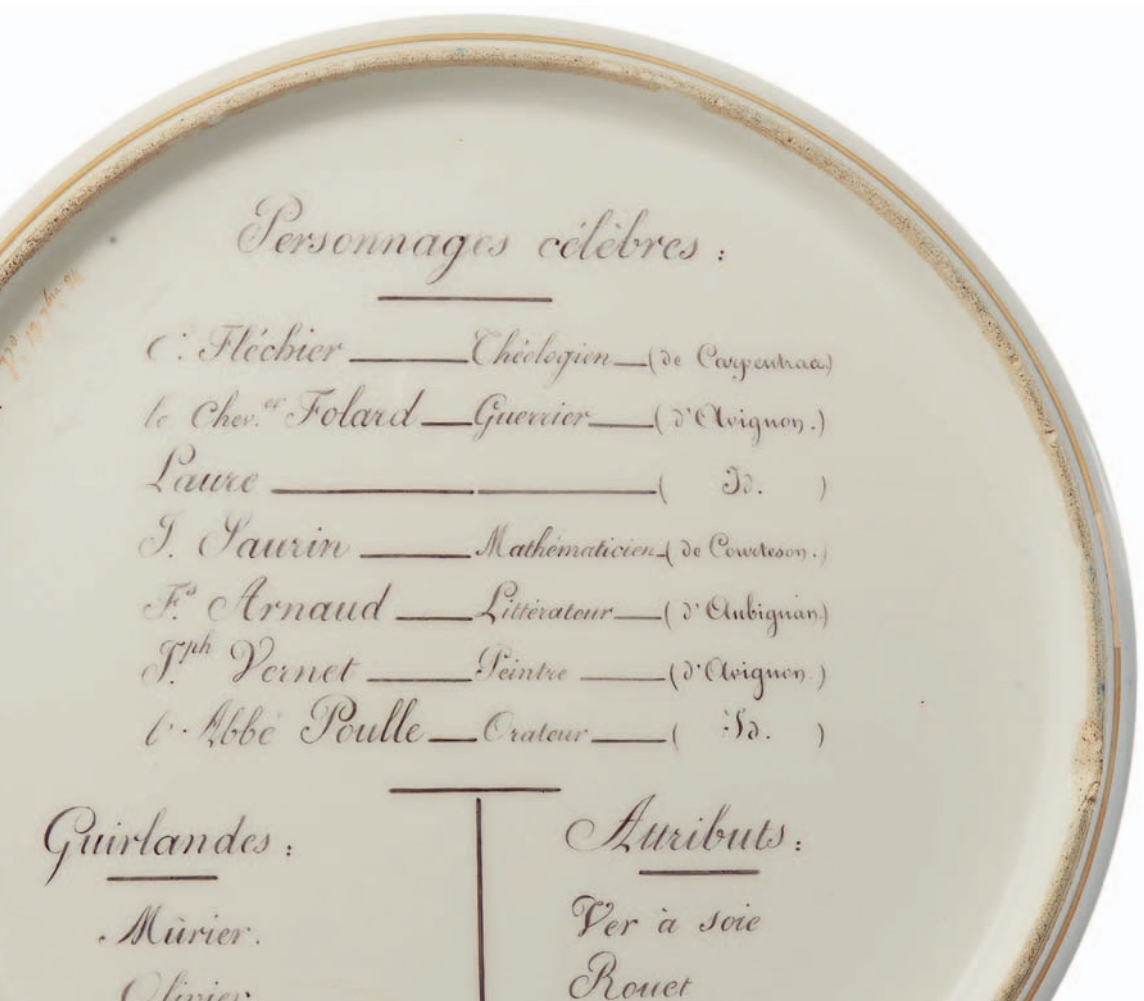 Personnages célèbres :
E. Fléchier — Théologien — (de Carpentras)
le Chev.er Folard — Guerrier — (d'Avignon.)
Laure — — ( Id. )
J. Saurin — Mathématicien — (de Courteson.)
F.s Arnaud — Littérateur — (d'Aubignan.)
J.ph Vernet — Peintre — (d'Avignon.)
l'Abbé Poulle — Orateur — ( Id. )
Guirlandes :
Mûrier.
Olivier
Attributs :
Ver à soie
Rouet